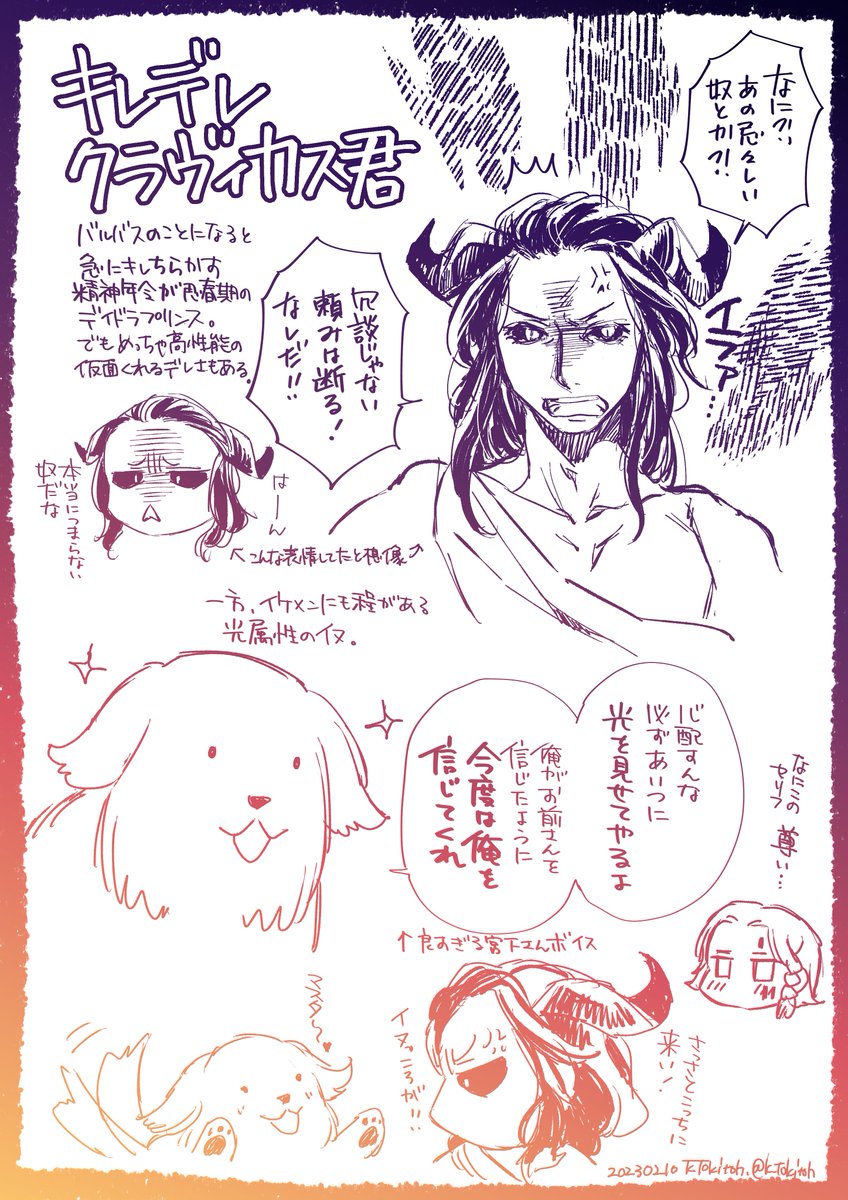 キレデレ
クラヴィカス君
なに?!
あの忌々しい
奴とか?!
バルバスのことになると
急にキレちらかす
精神年令が思春期の
デイドラプリンス。
でもめっちゃ高性能の
仮面くれるデレさもある。
冗談じゃない
頼みは断る!
なしだ!!
イラァ…
はーん
本当につまらない
奴だな
↖こんな表情してたと想像↗
一方、イケメンにも程がある
光属性のイヌ。
心配すんな
必ずあいつに
光を見せてやるよ
俺がお前さんを
信じたように
今度は俺を
信じてくれ
なにこの
セリフ
尊い…
↑良すぎる宮下さんボイス
マスター♥
イヌッころが!!
さっさとこっちに
来い!
20230210 K.Tokitoh.@k_Tokitoh